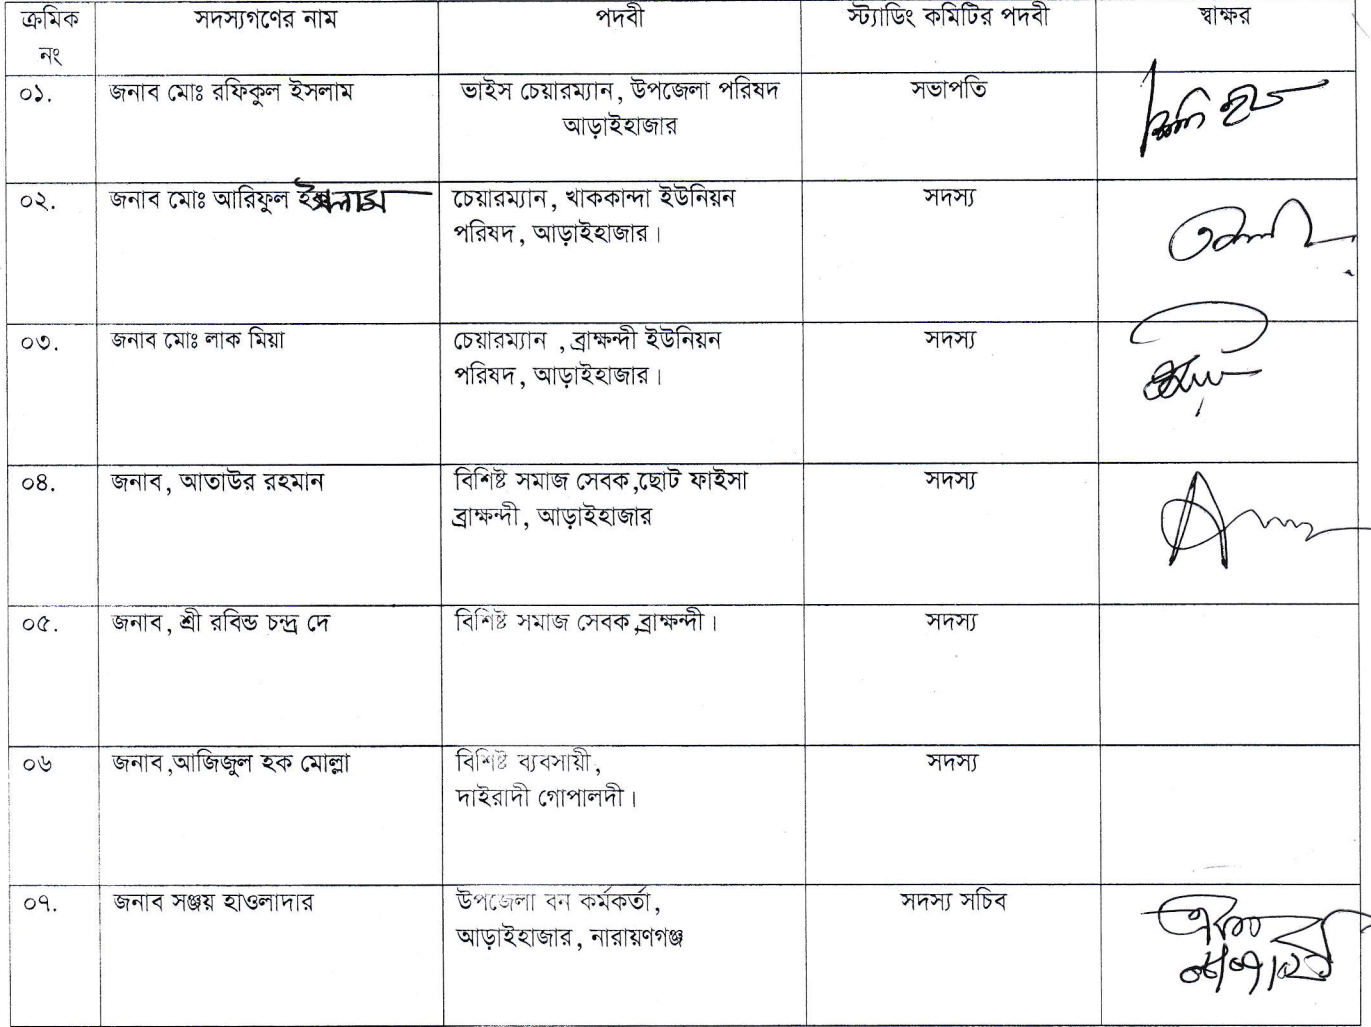 ক্রমিক নং সদস্যগণের নাম পদবী স্ট্যাডিং কমিটির পদবী স্বাক্ষর
০১. জনাব মোঃ রফিকুল ইসলাম ভাইস চেয়ারম্যান, উপজেলা পরিষদ সভাপতি
আড়াইহাজার
০২. জনাব মোঃ আরিফুল ইসলাম চেয়ারম্যান, খাককান্দা ইউনিয়ন সদস্য
পরিষদ, আড়াইহাজার।
০৩. জনাব মোঃ লাক মিয়া চেয়ারম্যান , ব্রাক্ষন্দী ইউনিয়ন সদস্য
পরিষদ, আড়াইহাজার।
০৪. জনাব, আতাউর রহমান বিশিষ্ট সমাজ সেবক,ছোট ফাইসা সদস্য
ব্রাক্ষন্দী, আড়াইহাজার
০৫. জনাব, শ্রী রবিন্ড চন্দ্র দে বিশিষ্ট সমাজ সেবক,ব্রাক্ষন্দী। সদস্য
০৬ জনাব,আজিজুল হক মোল্লা বিশিষ্ট ব্যবসায়ী, সদস্য
দাইরাদী গোপালদী।
০৭. জনাব সঞ্জয় হাওলাদার উপজেলা বন কর্মকর্তা, সদস্য সচিব
আড়াইহাজার, নারায়ণগঞ্জ